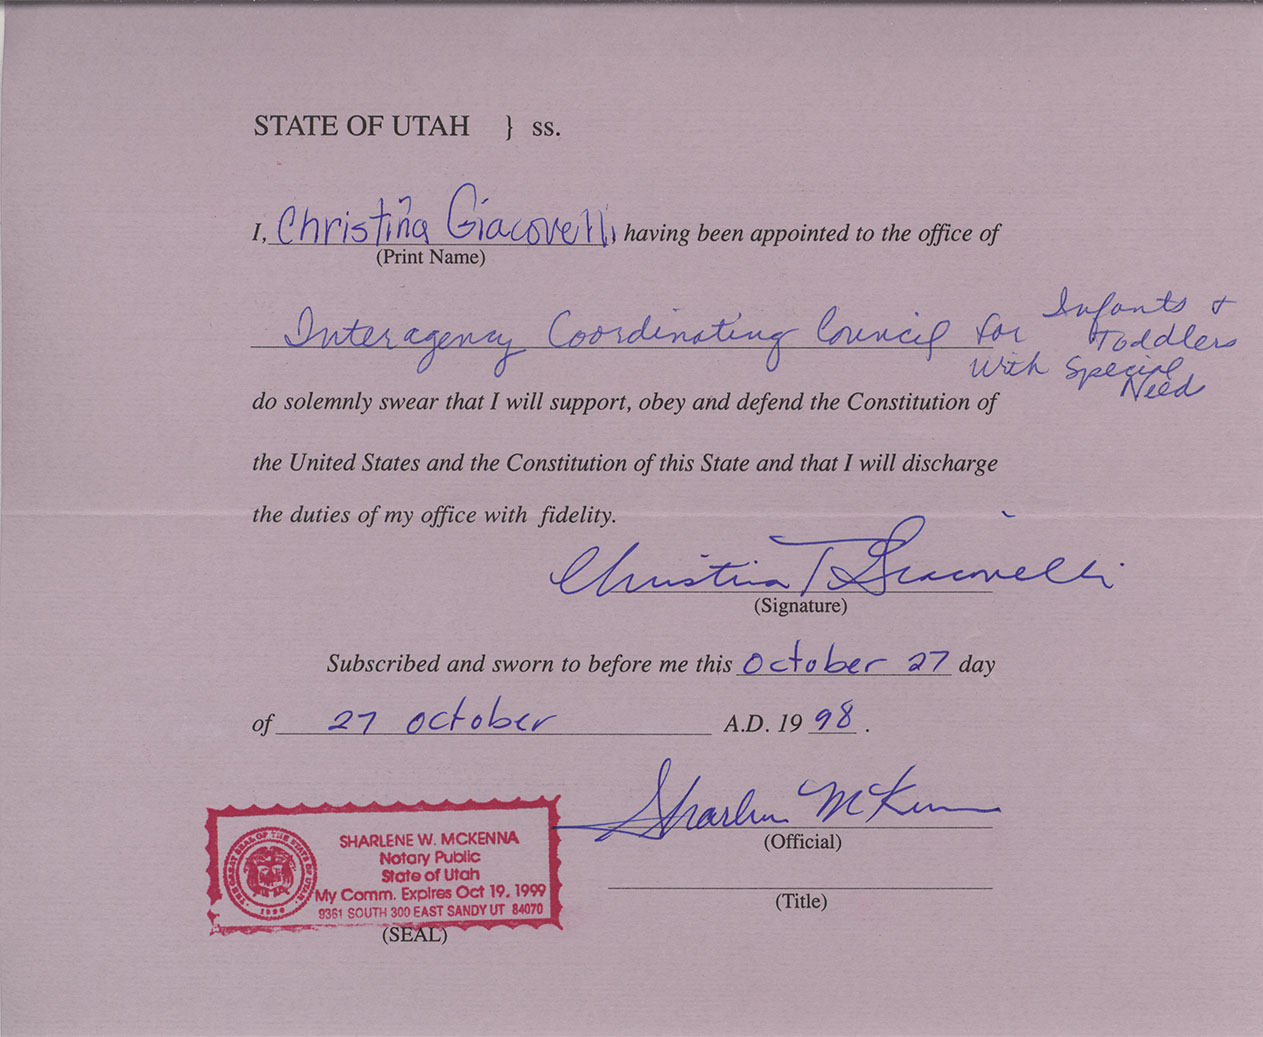 STATE OF UTAH } ss.
I, Christina Giacovelli, having been appointed to the office of
(Print Name)
Interagency Coordinating Council for Infants + Toddlers With Special Need
do solemnly swear that I will support, obey and defend the Constitution of
the United States and the Constitution of this State and that I will discharge
the duties of my office with fidelity.
Christina T. Giacovelli
(Signature)
Subscribed and sworn to before me this October 27 day
of 27 October A.D. 19 98.
Sharlene McKenna
(Official)
(Title)
SHARLENE W. MCKENNA
Notary Public
State of Utah
My Comm. Expires Oct 19, 1999
9361 SOUTH 300 EAST SANDY UT 84070
THE GREAT SEAL OF THE STATE OF UTAH
1896
(SEAL)